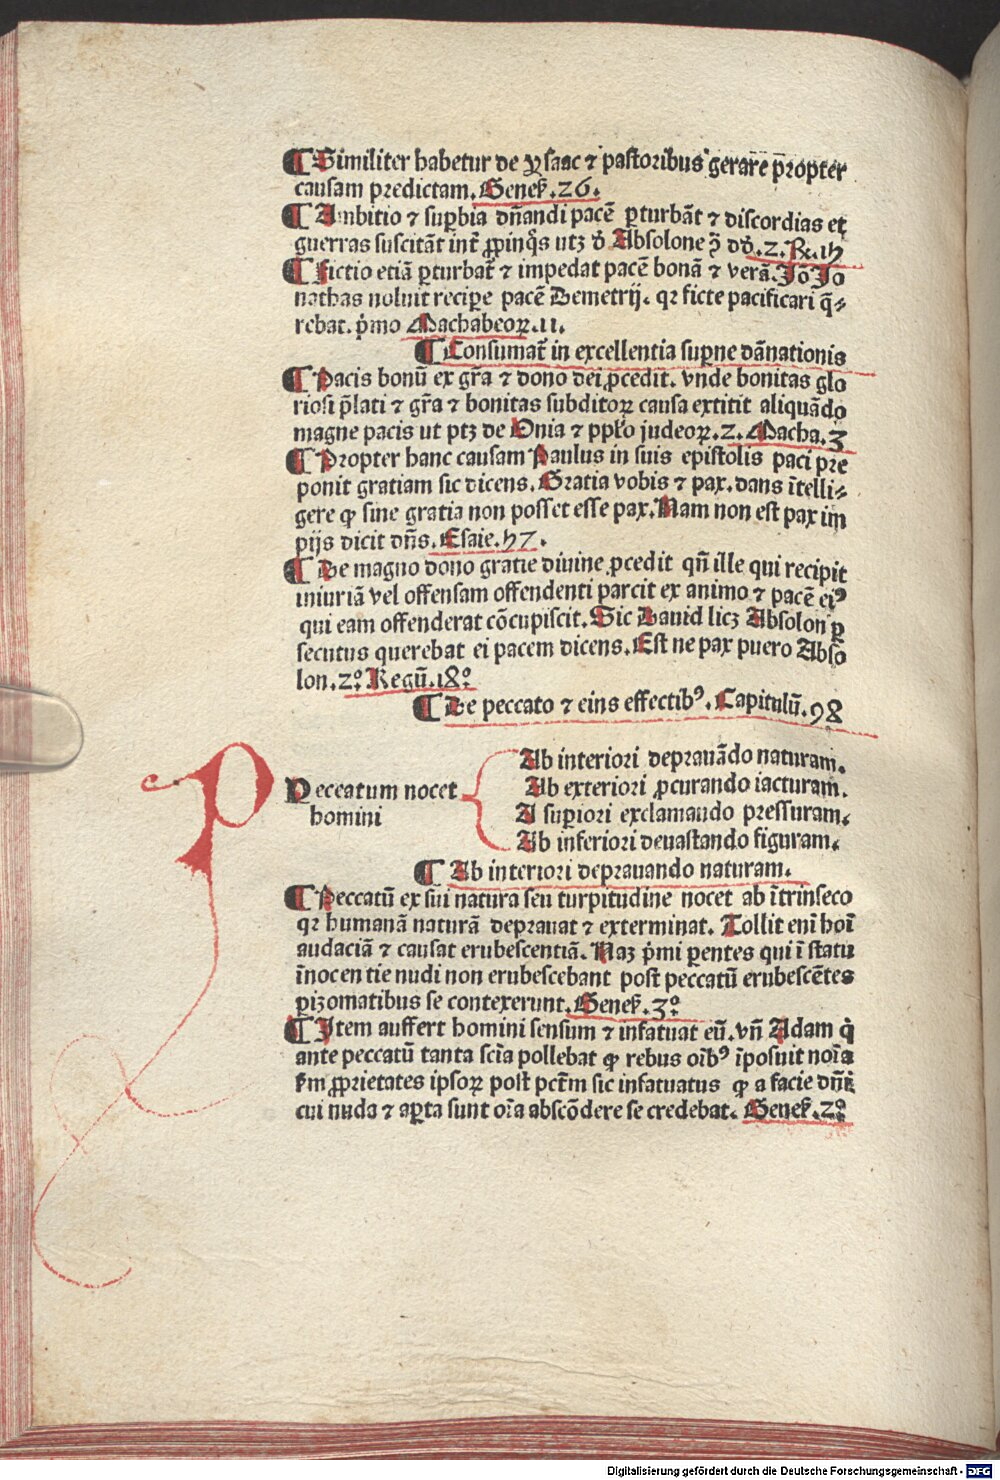 ¶ Similiter habetur de ysaac ⁊ pastoribus gerare p̄ropter
causam predictam. Geneẜ. 26.
¶ Ambitio ⁊ suꝑbia dn̄andi pacē ꝑturbāt ⁊ discordias et
guerras suscitāt int̄ ꝓpinq̄s utꝫ d̄ Absolone ꝯ̄ dd̄. 2. R̄. 15
¶ Fictio etiā ꝑturbat̄ ⁊ impedat pacē bonā ⁊ verā. Iō Io
nathas noluit reciꝑe pacē Demetrij. qꝛ ficte pacificari q̄⸗
rebat. p̄mo Machabeoꝝ. 11.
¶ Consumat̄ in excellentia suꝑne dānationis
¶ Pacis bonū ex gr̄a ⁊ dono dei ꝓcedit. vnde bonitas glo
riosi p̄lati ⁊ gr̄a ⁊ bonitas subditoꝝ causa extitit aliquādo
magne pacis ut ptꝫ de Onia ⁊ pplo iudeoꝝ. 2. Macha. 3
¶ Propter hanc causam Paulus in suis epistolis paci pre
ponit gratiam sic dicens. Gratia vobis ⁊ pax. dans ītelli⸗
gere ꝙ sine gratia non posset esse pax. Nam non est pax im
pijs dicit dn̄s. Esaie. 57.
¶ De magno dono gratie diuine ꝓcedit qn̄ ille qui recipit
iniuriā vel offensam offendenti parcit ex animo ⁊ pacē eiꝰ
qui eam offenderat cōcupiscit. Sic Dauid licꝫ Absolon ꝑ
secutus querebat ei pacem dicens. Est ne pax puero Abso
lon. 2º Regū. 18º
¶ De peccato ⁊ eius effectibꝰ. Capitulū. 98
Peccatum nocet
homini
Ab interiori deprauādo naturam.
Ab exteriori ꝓcurando iacturam.
A suꝑiori exclamando pressuram.
Ab inferiori deuastando figuram.
¶ Ab interiori deprauando naturam.
¶ Peccatū ex sui natura seu turpitudine nocet ab ītrinseco
qꝛ humanā naturā deprauat ⁊ exterminat. Tollit eni hoī
audaciā ⁊ causat erubescentiā. Naꝫ p̄mi ꝑentes qui ī statu
īnocentie nudi non erubescebant post peccatū erubescētes
ꝑizomatibus se contexerunt. Geneẜ. 3º
¶ Item auffert homini sensum ⁊ infatuat eū. vn̄ Adam q̇
ante peccatū tanta scīa pollebat ꝙ rebus oībꝰ īposuit noīa
ẜm ꝓprietates ipsoꝝ post pctm̄ sic infatuatus ꝙ a facie dn̄i
cui nuda ⁊ aꝑta sunt oīa abscōdere se credebat. Geneẜ. 2º
Digitalisierung gefördert durch die Deutsche Forschungsgemeinschaft - DFG